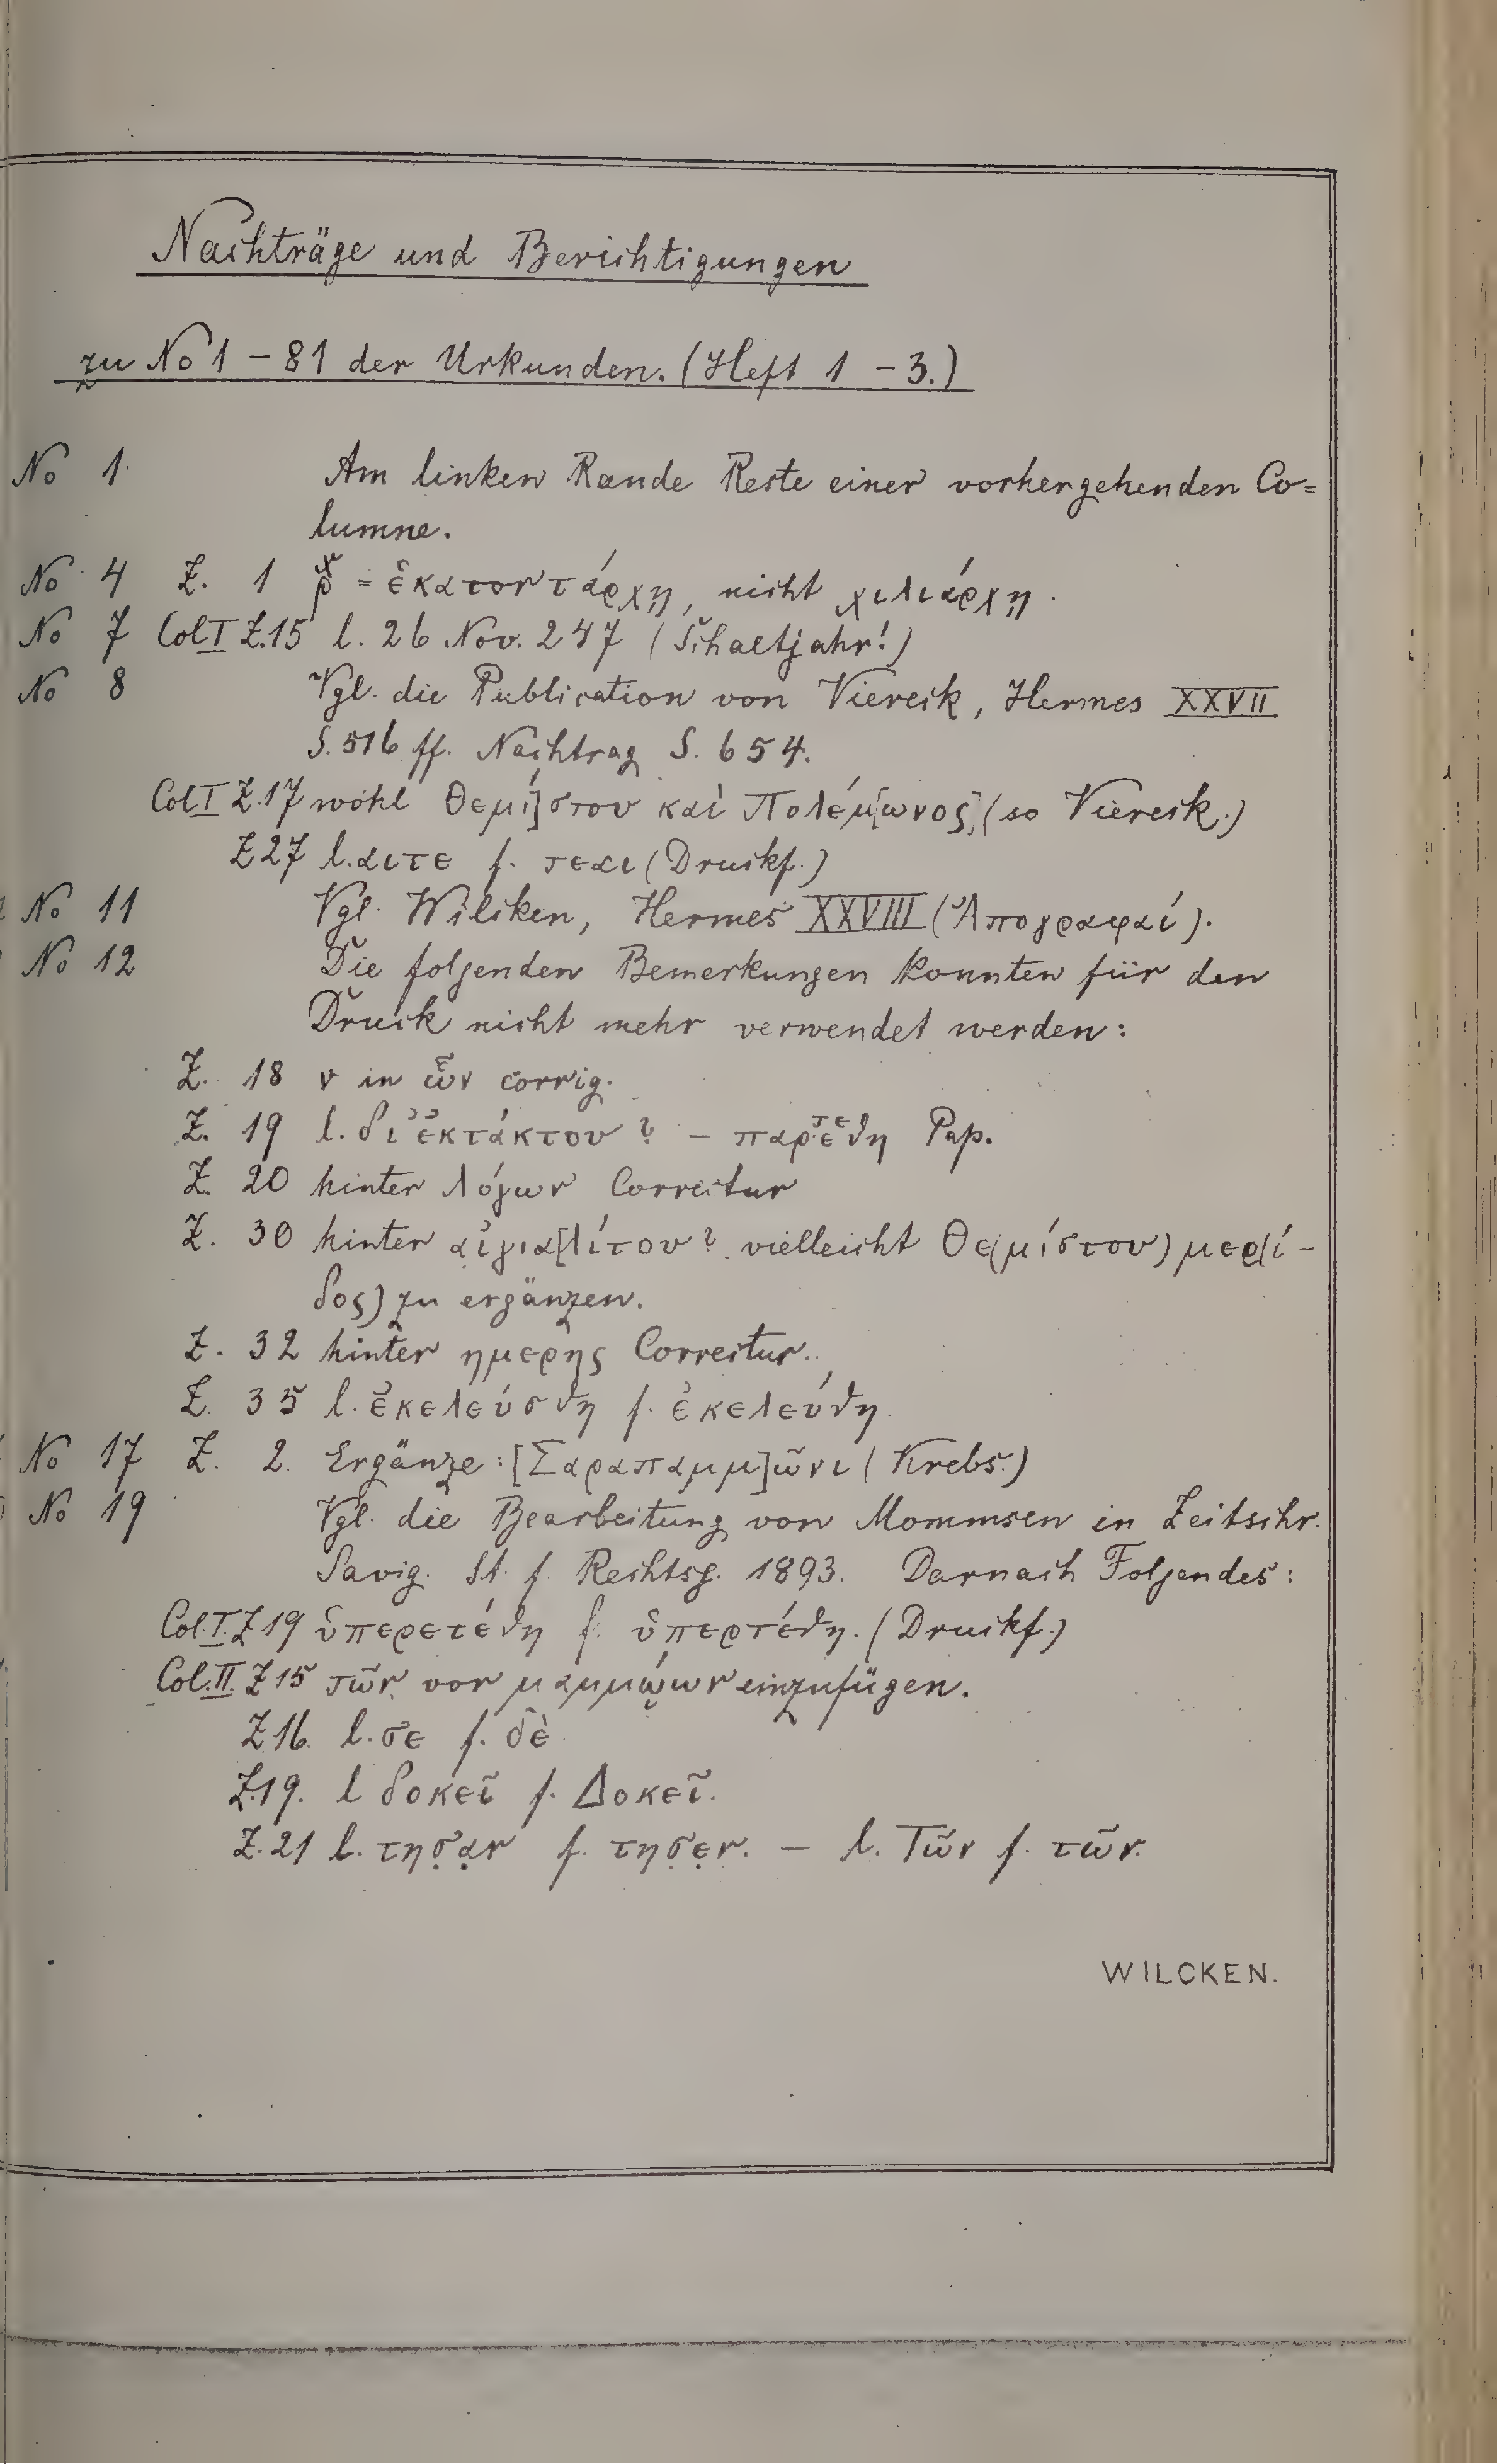 Nachträge und Berichtigungen
zu No 1 – 81 der Urkunden. (Heft 1 – 3.)
No 1. Am linken Rande Reste einer vorhergehenden Co=
lumne.
No 4 Z. 1 = ἑκατοντάρχῃ, nicht χιλιάρχῃ.
No 7 Col I Z. 15 l. 26 Nov. 247 (Schaltjahr!)
No 8 Vgl. die Publication von Viereck, Hermes XXVII
S. 516 ff. Nachtrag S. 654.
Col I Z. 17 wohl Θεμί]στου καὶ Πολέμ[ωνος] (so Viereck.)
Z 27 l. αιτε f. τεαι (Druckf.)
No 11 Vgl. Wilcken, Hermes XXVIII (Ἀπογραφαί).
No 12 Die folgenden Bemerkungen konnten für den
Druck nicht mehr verwendet werden:
Z. 18 ν in ὧν corrig.
Z. 19 l. δι' ἐκτάκτου? – παρετέθη Pap.
Z. 20 hinter λόγων Correctur
Z. 30 hinter αἰγια[λίτου? vielleicht Θε(μίστου) μερ(ί–
δος) zu ergänzen.
Z. 32 hinter ημερης Correctur.
Z. 35 l. ἐκελεύσθη f. ἐκελεύθη.
No 17 Z. 2. Ergänze: [Σαραπαμμ]ῶνι (Krebs.)
No 19 Vgl. die Bearbeitung von Mommsen in Zeitschr.
Savig. St. f. Rechtsg. 1893. Darnach Folgendes:
Col. I. Z 19 ὑπερετέθη f. ὑπερτέθη. (Druckf.)
Col. II. Z 15 τῶν vor μαμμῴων einzufügen.
Z 16. l. σε f. δὲ
Z. 19. l δοκεῖ f. Δοκεῖ.
Z. 21 l. τησ̣α̣ν f. τησ̣ε̣ν. – l. Τῶν f. τῶν.
WILCKEN.